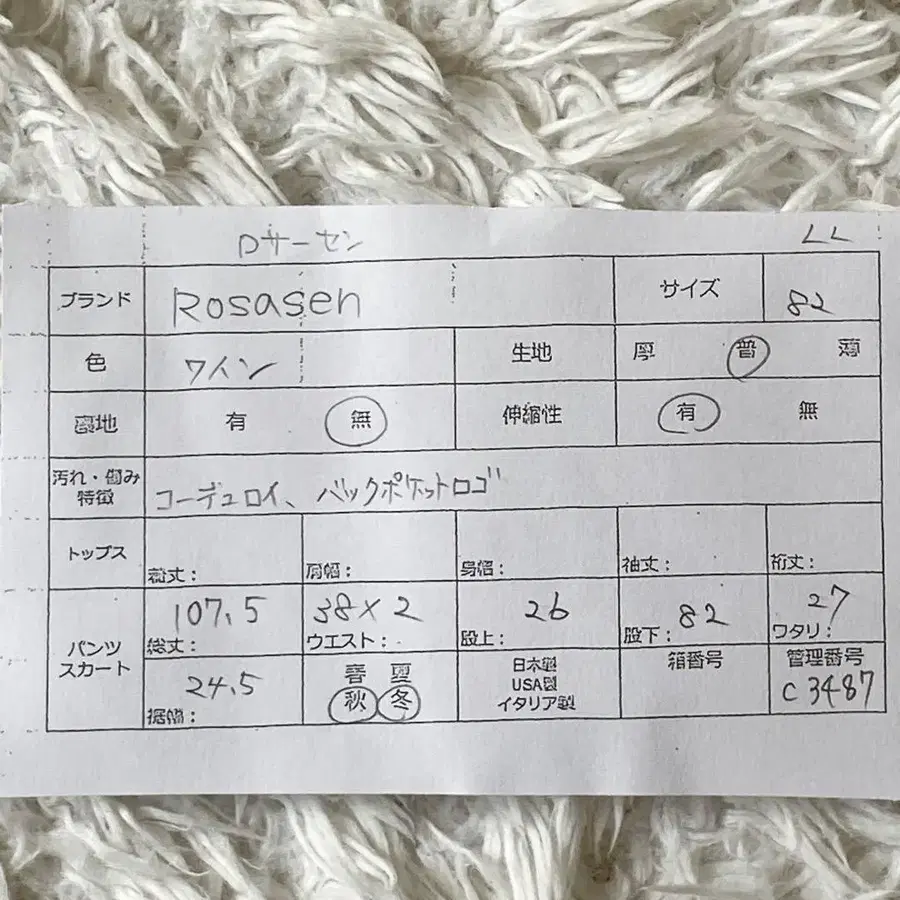 ロサーセン LL
ブランド Rosasen サイズ 82
色 ワイン 生地 厚 普 薄
裏地 有 無 伸縮性 有 無
汚れ・傷み
特徴 コーデュロイ、バックポケットロゴ
トップス 着丈: 肩幅: 身幅: 袖丈: 裄丈:
パンツ
スカート
107.5 38×2 26 82 27
総丈: ウエスト: 股上: 股下: ワタリ:
24.5
裾幅:
春 夏
秋 冬
日本製
USA製
イタリア製
箱番号
管理番号
C3487